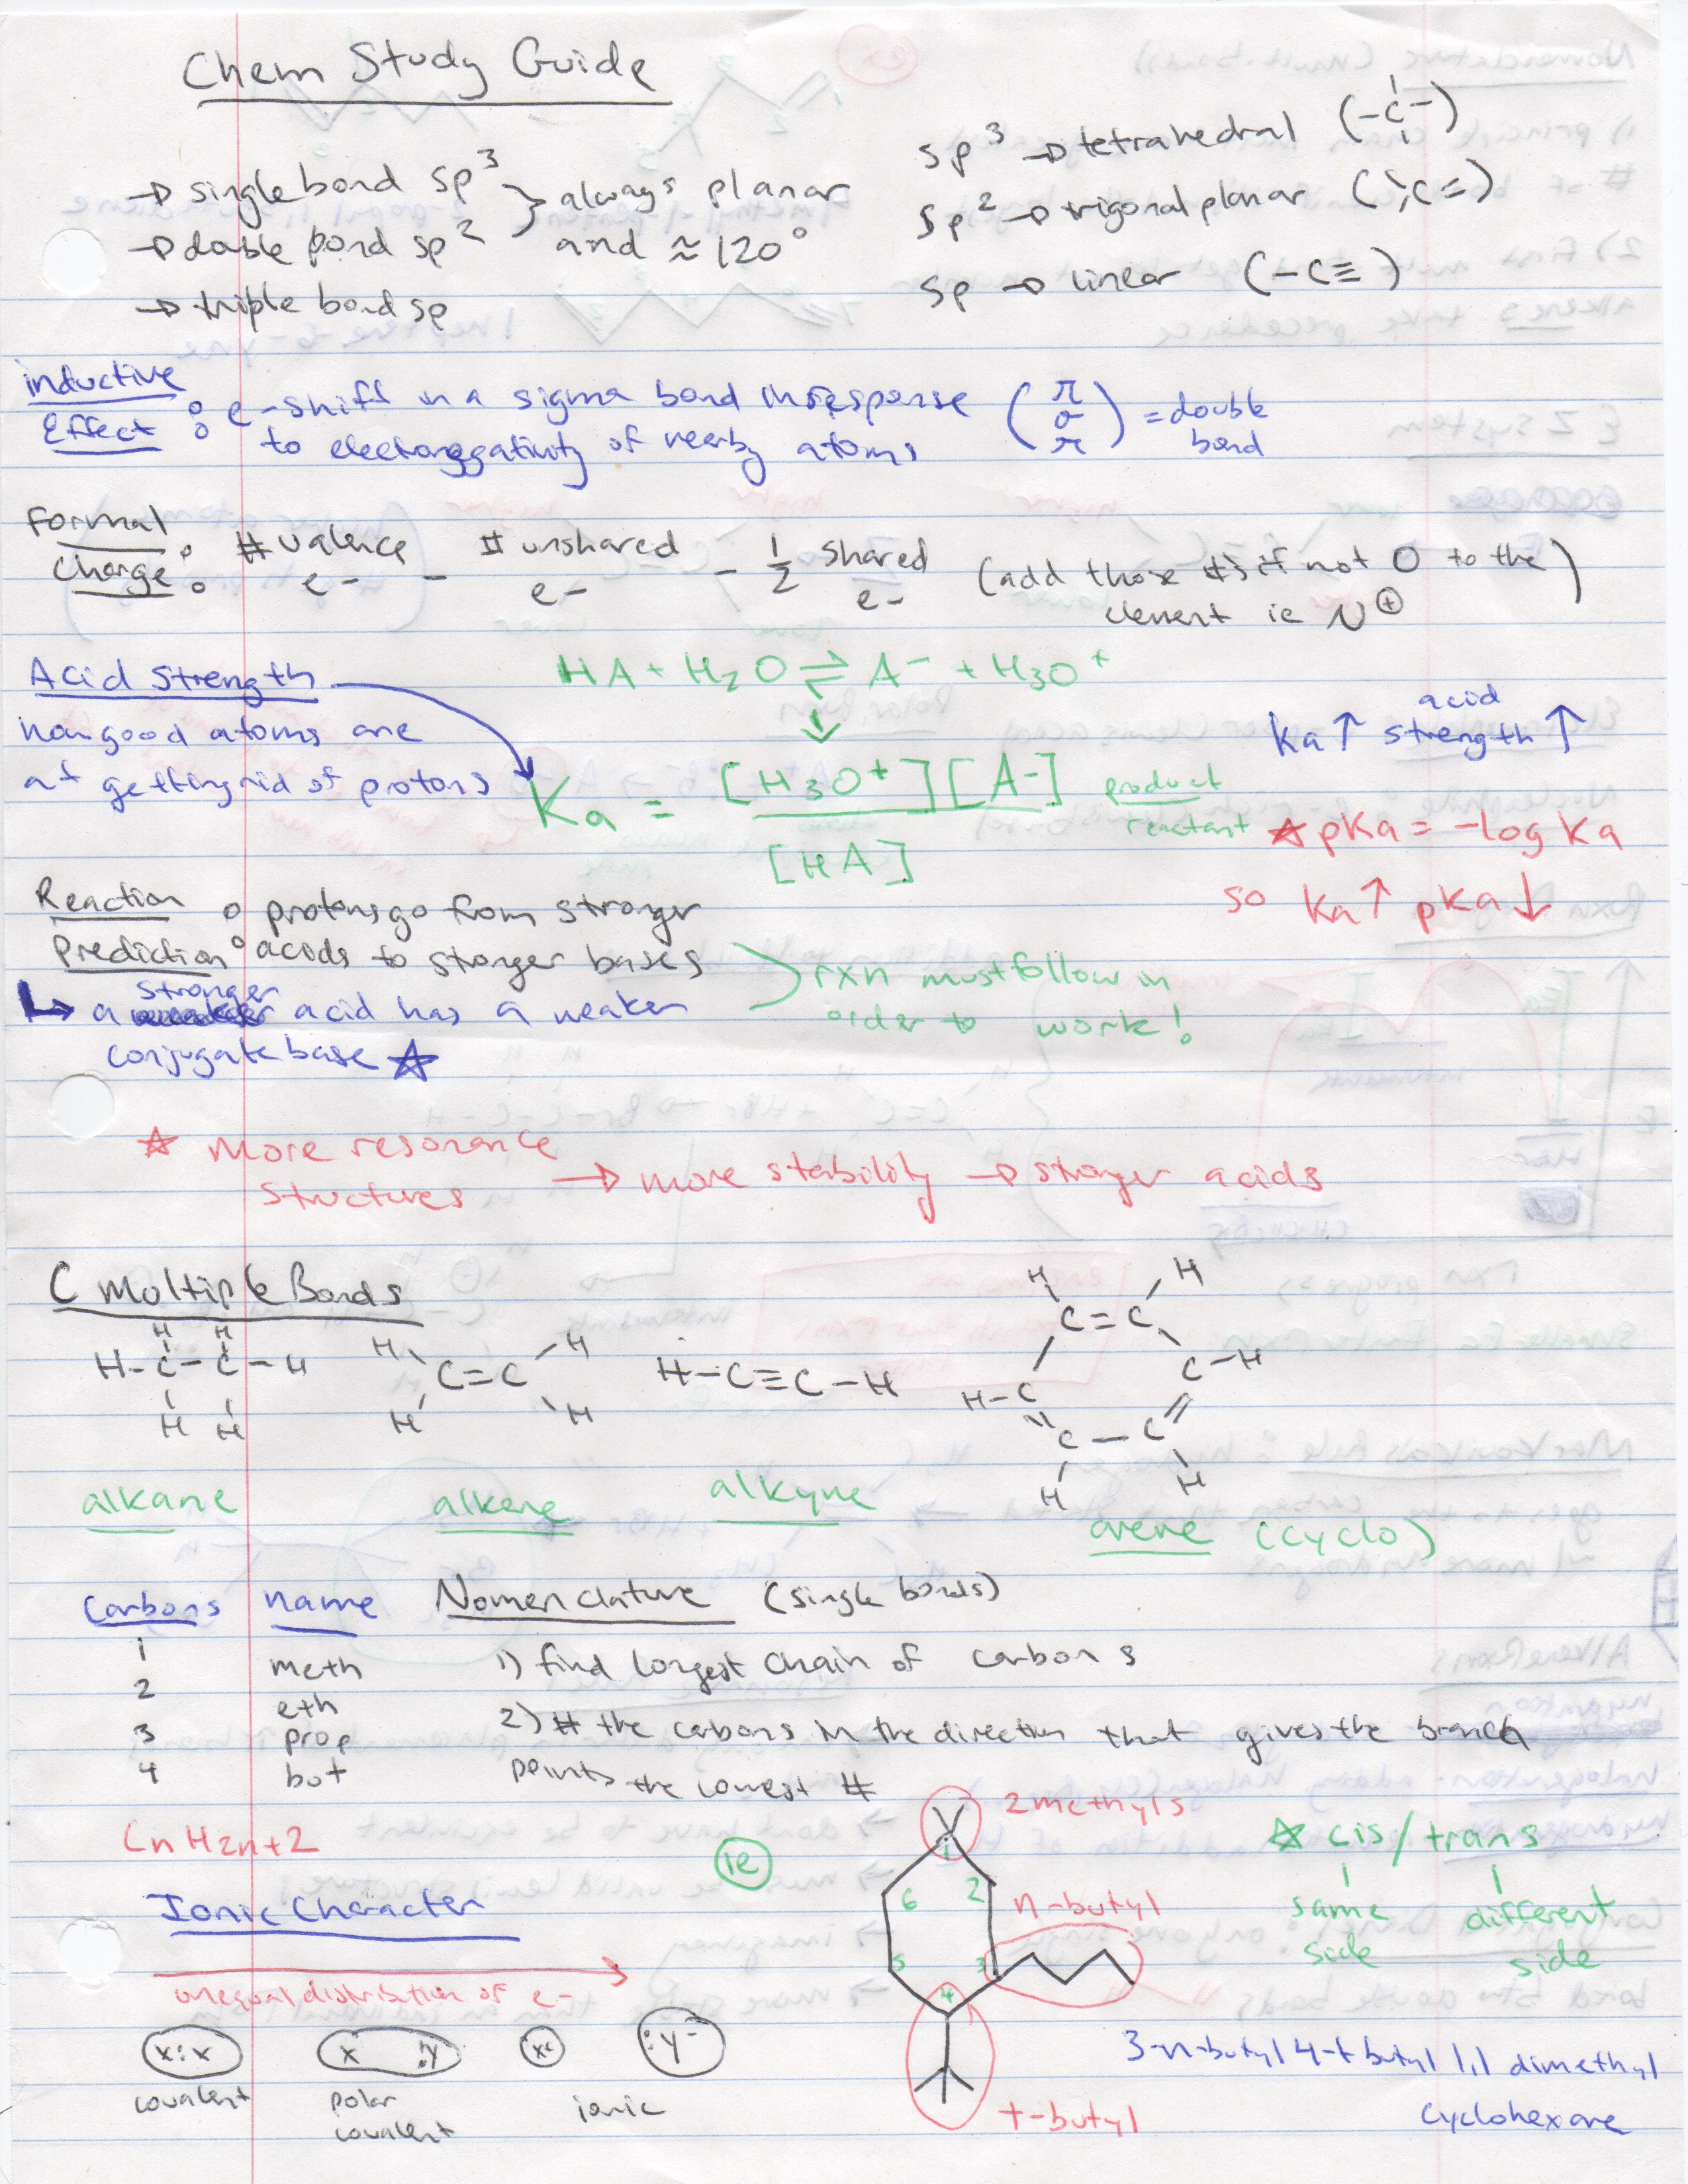 Chem Study Guide
→ single bond sp³ } always planar
→ double bond sp² and ≈ 120°
→ triple bond sp
sp³ → tetrahedral (-C-)
sp² → trigonal planar (C=)
sp → linear (-C≡)
inductive
Effect : e- shift in a sigma bond in response
to electronegativity of nearby atoms
(π σ π) = double
bond
Formal
Charge : # valence e- - # unshared e- - 1/2 shared e- (add those #s if not 0 to the
element ie N⊕)
Acid Strength
how good atoms are
at getting rid of protons
HA + H₂O ⇌ A⁻ + H₃O⁺
Ka = [H₃O⁺][A-]
[HA]
product
reactant
Ka ↑ acid strength ↑
☆ pKa = -log Ka
so Ka ↑ pKa ↓
Reaction
Prediction : protons go from stronger
acids to stronger bases
↳ a stronger acid has a weaker
conjugate base ☆
rxn must follow in
order to work!
☆ More resonance
structures → more stability → stronger acids
C Multiple Bonds
H H
H-C-C-H
H H
H H
C=C
H H
H-C≡C-H
H H
C=C
H-C C-H
C-C
H H
alkane
alkene
alkyne
arene (cyclo)
Carbons name
1 meth
2 eth
3 prop
4 but
CnH2n+2
Nomenclature (single bonds)
1) find longest chain of carbons
2) # the carbons in the direction that gives the branch
points the lowest #
Ionic Character
unequal distribution of e-
x:x
covalent
x :y
polar
covalent
:y⁻
ionic
ie
2 methyls
1
2
3
4
5
6
n-butyl
t-butyl
☆ cis/trans
same
side
different
side
3-n-butyl 4-t butyl 1,1 dimethyl
cyclohexane